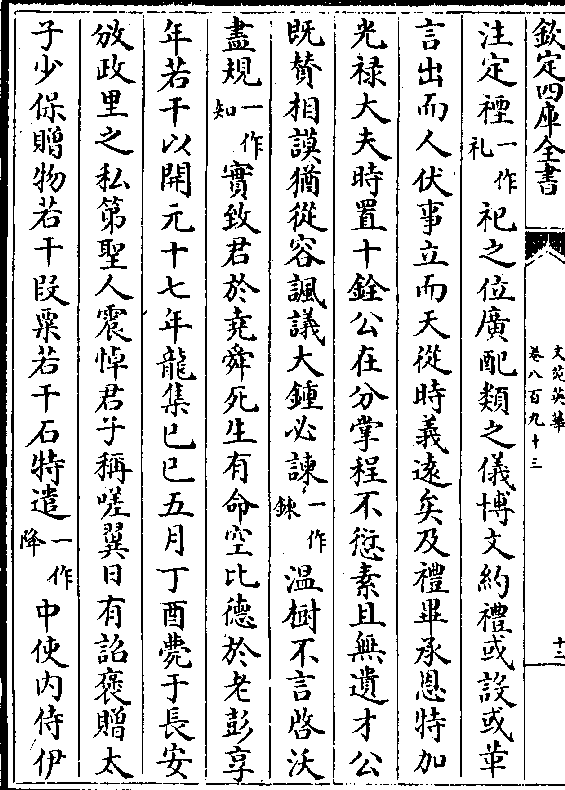 欽定四庫全書
文苑英華
卷八百九十三
十二
注定禋一作礼祀之位廣配類之儀博文約禮或設或革
言出而人伏事立而天從時義遠矣及禮畢承恩特加
光禄大夫時置十銓公在分掌程不愆素且無遺才公
既賛相謨猶從容諷議大鍾必諫一作鍊温樹不言啓沃
盡規一作知實致君於堯舜死生有命空比德於老彭享
年若干以開元十七年龍集已巳五月丁酉薨于長安
攽政里之私第聖人震悼君子稱嗟翼日有詔褒贈太
子少保贈物若干段粟若干石特遣一作降中使内侍伊